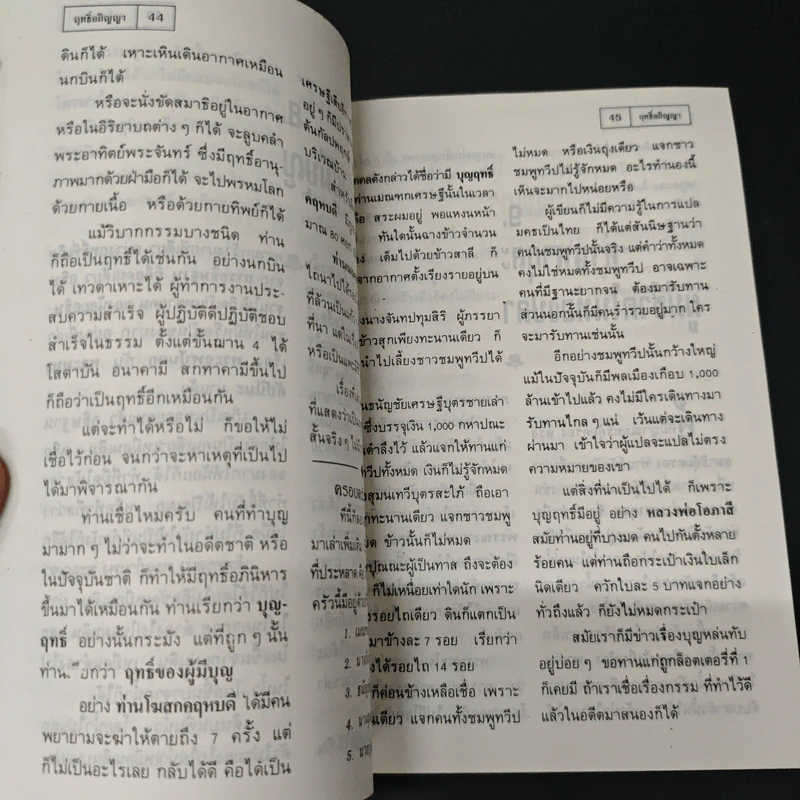 ฤทธิ์อภิญญา 44
ดินก็ได้ เหาะเหินเดินอากาศเหมือน
นกบินก็ได้
หรือจะนั่งขัดสมาธิอยู่ในอากาศ
หรือในอิริยาบถต่าง ๆ ก็ได้ จะลูบคลำ
พระอาทิตย์พระจันทร์ ซึ่งมีฤทธิ์อานุ-
ภาพมากด้วยฝ่ามือก็ได้ จะไปพรหมโลก
ด้วยกายเนื้อ หรือด้วยกายทิพย์ก็ได้
แม้วิบากกรรมบางชนิด ท่าน
ก็ถือเป็นฤทธิ์ได้เช่นกัน อย่างนกบิน
ได้ เทวดาเหาะได้ ผู้ทำการงานประ-
สบความสำเร็จ ผู้ปฏิบัติดีปฏิบัติชอบ
สำเร็จในธรรม ตั้งแต่ขั้นฌาน 4 ได้
โสดาบัน อนาคามี สกทาคามีขึ้นไป
ก็ถือว่าเป็นฤทธิ์อีกเหมือนกัน
แต่จะทำได้หรือไม่ ก็ขอให้ไม่
เชื่อไว้ก่อน จนกว่าจะหาเหตุที่เป็นไป
ได้มาพิจารณากัน
ท่านเชื่อไหมครับ คนที่ทำบุญ
มามาก ๆ ไม่ว่าจะทำในอดีตชาติ หรือ
ในปัจจุบันชาติ ก็ทำให้มีฤทธิ์อภินิหาร
ขึ้นมาได้เหมือนกัน ท่านเรียกว่า บุญ-
ฤทธิ์ อย่างนั้นกระมัง แต่ที่ถูก ๆ นั้น
ท่านเรียกว่า ฤทธิ์ของผู้มีบุญ
อย่าง ท่านโฆสกคฤหบดี ได้มีคน
พยายามจะฆ่าให้ตายถึง 7 ครั้ง แต่
ก็ไม่เป็นอะไรเลย กลับได้ดี คือได้เป็น
อยู่ ๆ ก็มีปรา
ต้นกัลปพฤกษ์
บริเวณบ้าน
สำหรับ
คฤหบดี
มาณ 80
ไถนาไปได้
ที่ล้วนเป็นแก้
ที่นา แต่ใน
หรือเป็นแพะ
เรื่อง
ที่แสดงว่าเป็น
สั้นจริง ๆ
ครอบคร
ที่นี้ก็
มาเล่าเพิ่มเติม
ที่ประหลาด
ครัวนี้มีอยู่ด้วย
1.
2.
3.
4.
5.
45 ฤทธิ์อภิญญา
คคลดังกล่าวได้ชื่อว่ามี บุญฤทธิ์
ท่านเมณฑกเศรษฐีนั้นในเวลา
สระผมอยู่ พอแหงนหน้า
ทันใดนั้นฉางข้าวจำนวน
เต็มไปด้วยข้าวสาลี ก็
จากอากาศตั้งเรียงรายอยู่บน
งนางจันทปทุมสิริ ผู้ภรรยา
ข้าวสุกเพียงทะนานเดียว ก็
นำไปเลี้ยงชาวชมพูทวีปได้
นธนัญชัยเศรษฐีบุตรชายเล่า
ซึ่งบรรจุเงิน 1,000 กหาปณะ
แล้วแจกให้ทานแก่
ทวีปทั้งหมด เงินก็ไม่รู้จักหมด
สุมนเทวีบุตรสะใภ้ ถือเอา
กทะนานเดียว แจกชาวชมพู
ข้าวนั้นก็ไม่หมด
ปุณณะผู้เป็นทาส ถึงจะต้อง
ก็ไม่เหนื่อยเท่าใดนัก เพราะ
รอยไถเดียว ดินก็แตกเป็น
มาข้างละ 7 รอย เรียกว่า
งได้รอยไถ 14 รอย
ก็ค่อนข้างเหลือเชื่อ เพราะ
เดียว แจกคนทั้งชมพูทวีป
ไม่หมด หรือเงินถุงเดียว แจกชาว
ชมพูทวีปไม่รู้จักหมด อะไรทำนองนี้
เห็นจะมากไปหน่อยหรือ
ผู้เขียนก็ไม่มีความรู้ในการแปล
มคธเป็นไทย ก็ได้แต่สันนิษฐานว่า
คนในชมพูทวีปนั้นจริง แต่คำว่าทั้งหมด
คงไม่ใช่หมดทั้งชมพูทวีป อาจเฉพาะ
คนที่มีฐานะยากจน ต้องมารับทาน
ส่วนนอกนั้นก็มีคนร่ำรวยอยู่มาก ใคร
จะมารับทานเช่นนั้น
อีกอย่างชมพูทวีปนั้นกว้างใหญ่
แม้ในปัจจุบันก็มีพลเมืองเกือบ 1,000
ล้านเข้าไปแล้ว คงไม่มีใครเดินทางมา
รับทานไกล ๆ แน่ เว้นแต่จะเดินทาง
ผ่านมา เข้าใจว่าผู้แปลจะแปลไม่ตรง
ความหมายของเขา
แต่สิ่งที่น่าเป็นไปได้ ก็เพราะ
บุญฤทธิ์มีอยู่ อย่าง หลวงพ่อโอภาสี
สมัยท่านอยู่ที่บางมด คนไปกันตั้งหลาย
ร้อยคน แต่ท่านถือกระเป๋าเงินใบเล็ก
นิดเดียว ควักใบละ 5 บาทแจกอย่าง
ทั่วถึงแล้ว ก็ยังไม่หมดกระเป๋า
สมัยเราก็มีข่าวเรื่องบุญหล่นทับ
อยู่บ่อย ๆ ขอทานแก่ถูกล็อตเตอรี่ที่ 1
ก็เคยมี ถ้าเราเชื่อเรื่องกรรม ที่ทำไว้ดี
แล้วในอดีตมาสนองก็ได้